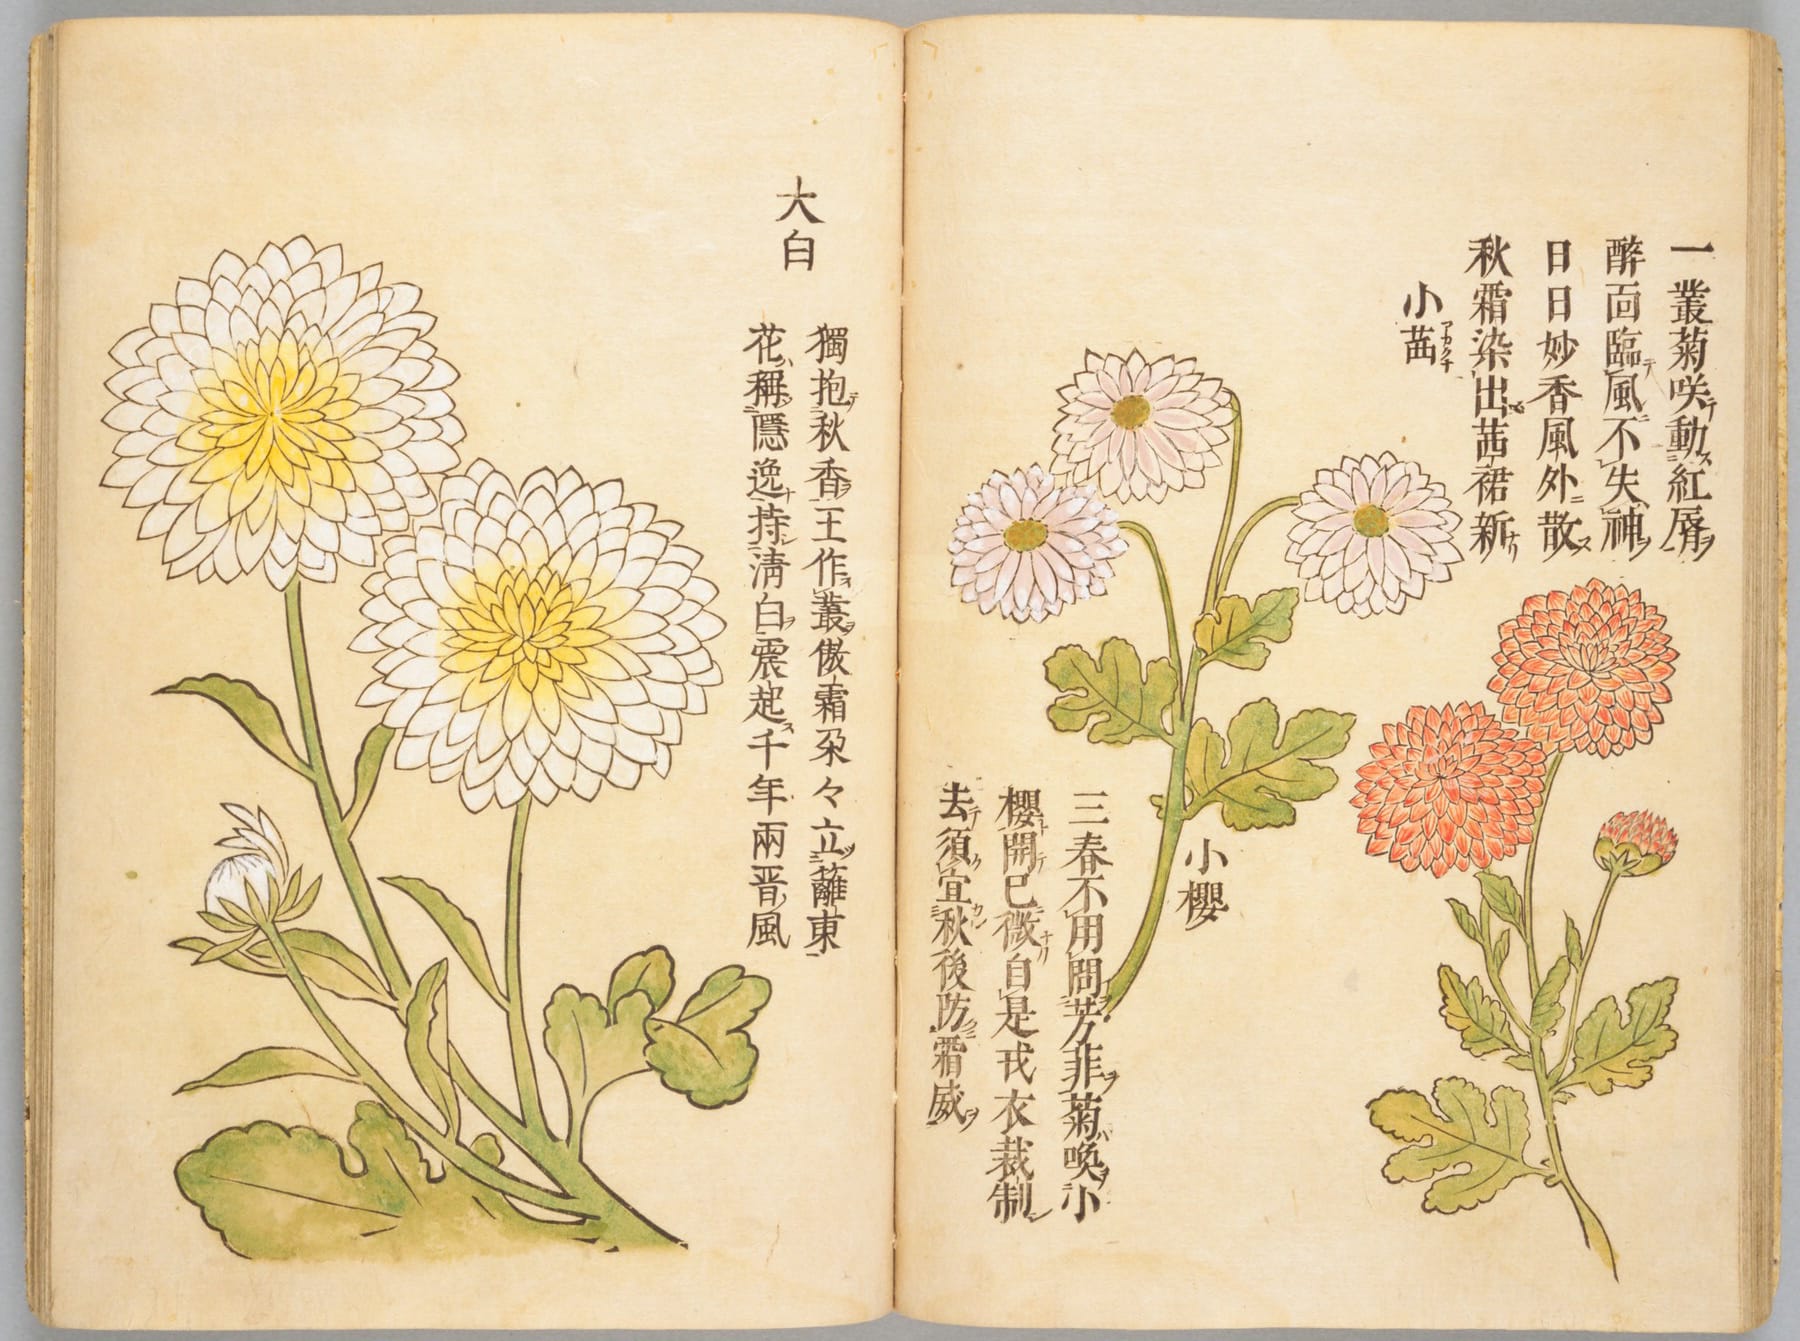 一叢菊咲動紅脣
醉面臨風不失神
日日妙香風外散
秋霜染出茜裙新
小茜
小櫻
三春不用問芳菲菊喚小
櫻開巳微自是戎衣裁制
去須宜秋後防霜威
大白
獨抱秋香王作叢傲霜朶々立蘺東
花稱隱逸持淸白震起千年兩晋風